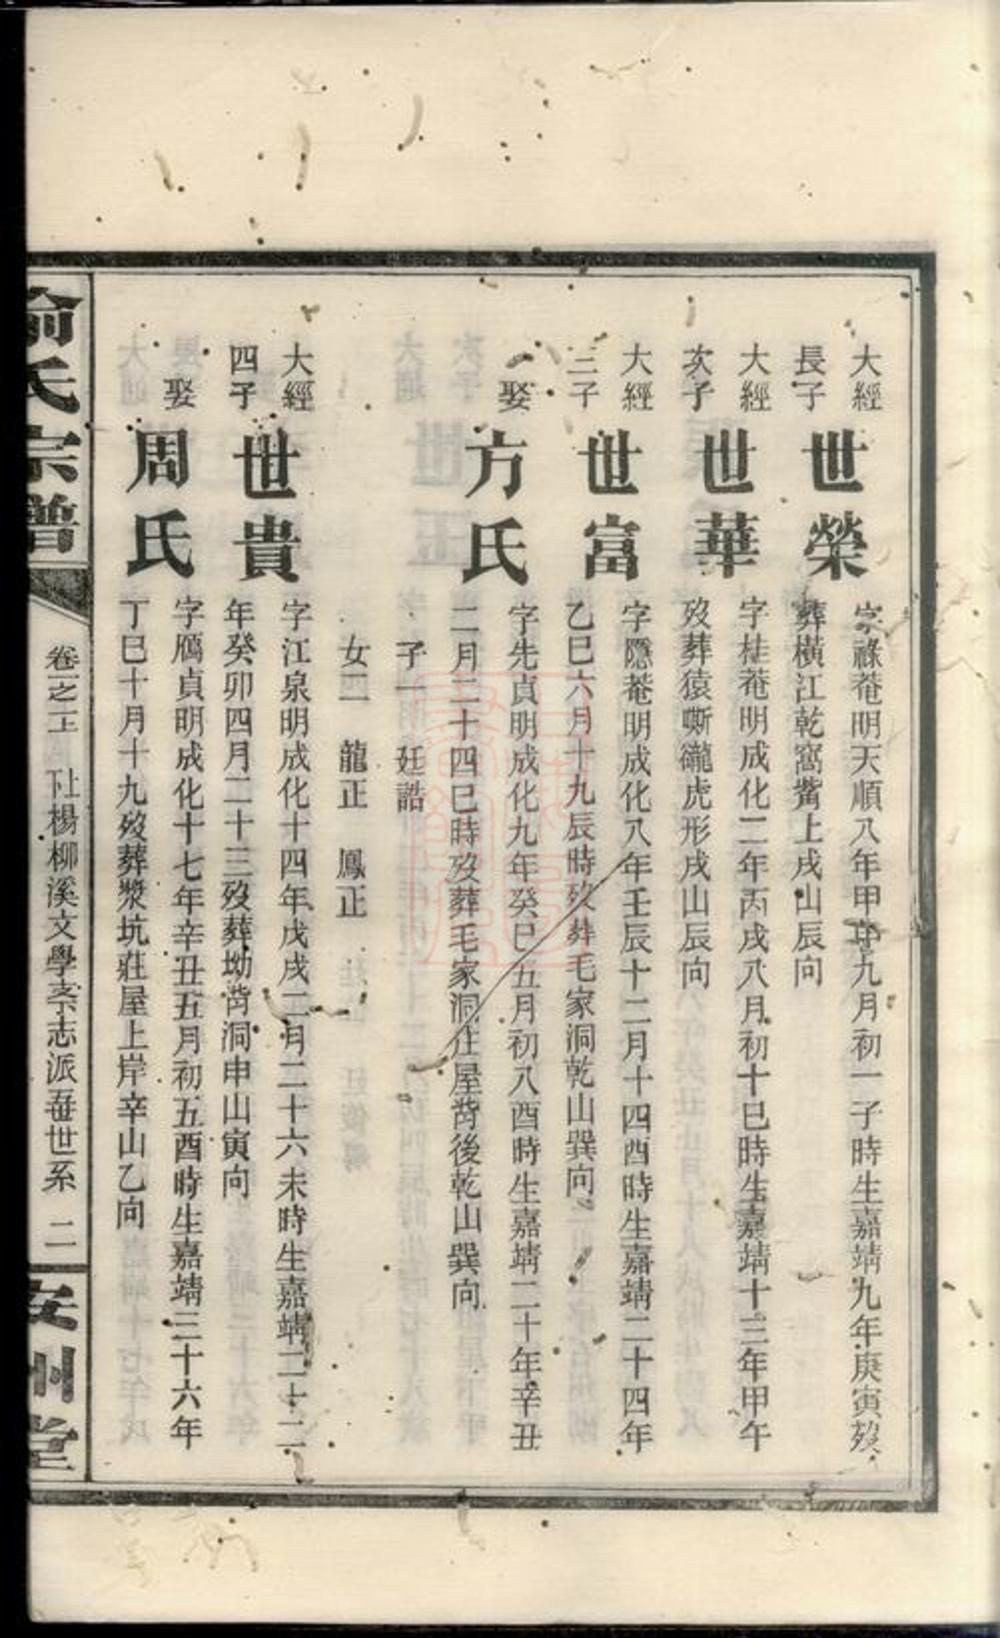 大經
長子
世榮
字祿菴明天順八年甲申九月初一子時生嘉靖九年庚寅歿
葬橫江乾窩觜上戌山辰向
大經
次子
世華
字桂菴明成化二年丙戌八月初十巳時生嘉靖十三年甲午
歿葬猿嘶礲虎形戌山辰向
大經
三子
世富
字隱菴明成化八年壬辰十二月十四酉時生嘉靖二十四年
乙巳六月十九辰時歿葬毛家洞乾山巽向
娶
方氏
字先貞明成化九年癸巳五月初八酉時生嘉靖二十年辛丑
二月二十四巳時歿葬毛家洞庄屋背後乾山巽向
子一 廷誥
女二 龍正 鳳正
大經
四子
世貴
字江泉明成化十四年戊戌二月二十六未時生嘉靖二十二
年癸卯四月二十三歿葬坳背洞申山寅向
娶
周氏
字鴈貞明成化十七年辛丑五月初五酉時生嘉靖三十六年
丁巳十月十九歿葬漿坑莊屋上岸辛山乙向
俞氏宗譜
卷一之上 下上楊柳溪文學季志派叁世系 二
安州堂